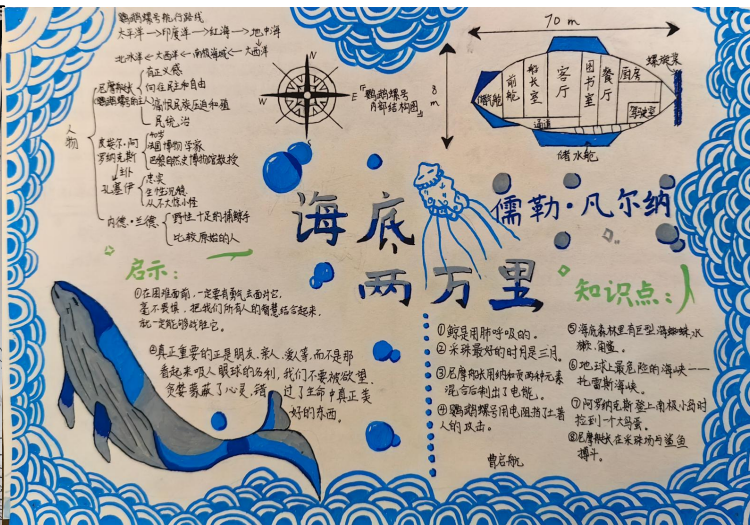 鹦鹉螺号航行路线
太平洋→印度洋→红海→地中海
北冰洋←大西洋←南极海域←大西洋
人物
尼摩船长
(鹦鹉螺号的主人)
有正义感
向往民主和自由
痛恨民族压迫和殖
民统治
皮埃尔·阿
罗纳克斯
知识
法国博物学家
巴黎自然史博物馆教授
↓仆
孔塞伊
忠实
生性沉稳
从不大惊小怪
内德·兰德
野性十足的捕鲸手
比较原始的人
N
W
E
S
『鹦鹉螺号
内部结构图』
70 m
8 m
储藏舱
前舱
船长室
客厅
图书室
餐厅
厨房
驾驶室
螺旋桨
通道
储水舱
海底
两万里
儒勒·凡尔纳
启示：
①在困难面前，一定要有勇气去面对它，
毫不畏惧，把我们所有人的智慧结合起来，
就一定能够战胜它。
②真正重要的正是朋友、亲人、爱人等，而不是那
看起来吸人眼球的名利，我们不要被欲望、
贪婪蒙蔽了心灵，错过了生命中真正美
好的东西。
知识点：
①鲸是用肺呼吸的。
②采珠最好的时月是三月。
③尼摩船长用纳和贡两种元素
混合后制出了电能。
④鹦鹉螺号用电阻挡了土著
人的攻击。
⑤海底森林里有巨型海蜘蛛、水
獭、角鲨。
⑥地球上最危险的海峡——
托雷斯海峡。
⑦阿罗纳克斯登上南极小岛时
捡到一个大鸟蛋。
⑧尼摩船长在采珠场与鲨鱼
搏斗。
曹启航